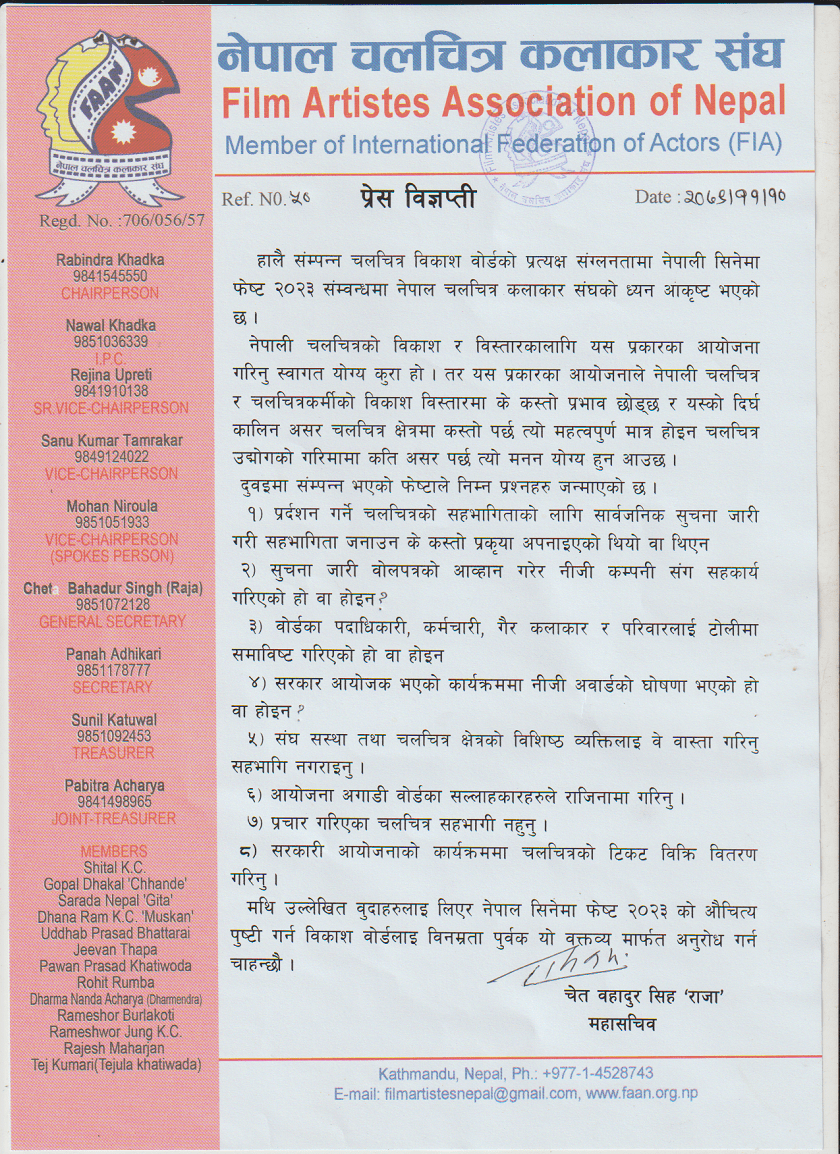 नेपाल चलचित्र कलाकार संघ
Film Artistes Association of Nepal
Member of International Federation of Actors (FIA)
FAAN
नेपाल चलचित्र कलाकार संघ
Regd. No. :706/056/57
Ref. N0. ५०
प्रेस विज्ञप्ती
Date : २०७९।११।१०
Rabindra Khadka
9841545550
CHAIRPERSON
Nawal Khadka
9851036339
I.P.C.
Rejina Upreti
9841910138
SR.VICE-CHAIRPERSON
Sanu Kumar Tamrakar
9849124022
VICE-CHAIRPERSON
Mohan Niroula
9851051933
VICE-CHAIRPERSON
(SPOKES PERSON)
Chet Bahadur Singh (Raja)
9851072128
GENERAL SECRETARY
Panah Adhikari
9851178777
SECRETARY
Sunil Katuwal
9851092453
TREASURER
Pabitra Acharya
9841498965
JOINT-TREASURER
MEMBERS
Shital K.C.
Gopal Dhakal 'Chhande'
Sarada Nepal 'Gita'
Dhana Ram K.C. 'Muskan'
Uddhab Prasad Bhattarai
Jeevan Thapa
Pawan Prasad Khatiwoda
Rohit Rumba
Dharma Nanda Acharya (Dharmendra)
Rameshor Burlakoti
Rameshwor Jung K.C.
Rajesh Maharjan
Tej Kumari(Tejula khatiwada)
हालै संम्पन्न चलचित्र विकाश वोर्डको प्रत्यक्ष संग्लनतामा नेपाली सिनेमा
फेष्ट २०२३ संम्वन्धमा नेपाल चलचित्र कलाकार संघको ध्यन आकृष्ट भएको
छ ।
नेपाली चलचित्रको विकाश र विस्तारकालागि यस प्रकारका आयोजना
गरिनु स्वागत योग्य कुरा हो । तर यस प्रकारका आयोजनाले नेपाली चलचित्र
र चलचित्रकर्मीको विकाश विस्तारमा के कस्तो प्रभाव छोड्छ र यस्को दिर्घ
कालिन असर चलचित्र क्षेत्रमा कस्तो पर्छ त्यो महत्वपुर्ण मात्र होइन चलचित्र
उद्योगको गरिमामा कति असर पर्छ त्यो मनन योग्य हुन आउछ ।
दुवइमा संम्पन्न भएको फेष्टाले निम्न प्रश्नहरु जन्माएको छ ।
१) प्रर्दशन गर्ने चलचित्रको सहभागिताको लागि सार्वजनिक सुचना जारी
गरी सहभागिता जनाउन के कस्तो प्रकृया अपनाइएको थियो वा थिएन
२) सुचना जारी वोलपत्रको आव्हान गरेर नीजी कम्पनी संग सहकार्य
गरिएको हो वा होइन?
३) वोर्डका पदाधिकारी, कर्मचारी, गैर कलाकार र परिवारलाई टोलीमा
समाविष्ट गरिएको हो वा होइन
४) सरकार आयोजक भएको कार्यक्रममा नीजी अवार्डको घोषणा भएको हो
वा होइन ?
५) संघ सस्था तथा चलचित्र क्षेत्रको विशिष्ठ व्यक्तिलाइ वे वास्ता गरिनु
सहभागि नगराइनु ।
६) आयोजना अगाडी वोर्डका सल्लाहकारहरुले राजिनामा गरिनु ।
७) प्रचार गरिएका चलचित्र सहभागी नहुनु ।
८) सरकारी आयोजनाको कार्यक्रममा चलचित्रको टिकट विक्रि वितरण
गरिनु ।
मथि उल्लेखित वुदाहरुलाइ लिएर नेपाल सिनेमा फेष्ट २०२३ को औचित्य
पुष्टी गर्न विकाश वोर्डलाइ विनम्रता पुर्वक यो वक्तव्य मार्फत अनुरोध गर्न
चाहन्छौ ।
चेत वहादुर सिंह 'राजा'
महासचिव
Kathmandu, Nepal, Ph.: +977-1-4528743
E-mail: filmartistesnepal@gmail.com, www.faan.org.np